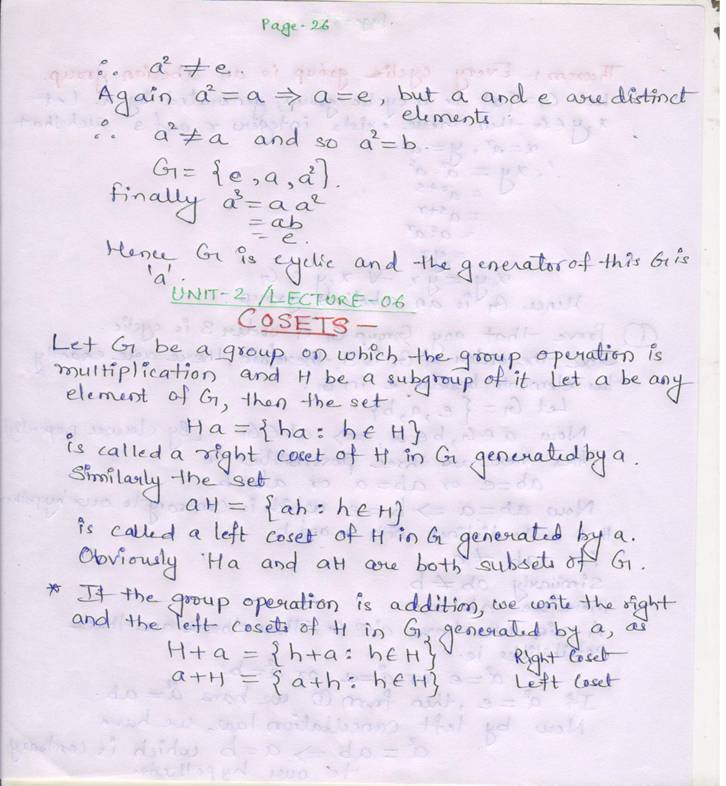 Page-26
∴ a² ≠ e
Again a² = a ⇒ a = e, but a and e are distinct
elements.
∴ a² ≠ a and so a² = b.
G = {e, a, a²}.
finally a³ = a a²
= ab
= e.
Hence G is cyclic and the generator of this G is
'a'.
UNIT-2 /LECTURE-06
COSETS -
Let G be a group on which the group operation is
multiplication and H be a subgroup of it. Let a be any
element of G, then the set
Ha = {ha : h ∈ H}
is called a right coset of H in G generated by a.
Similarly the set
aH = {ah : h ∈ H}
is called a left coset of H in G generated by a.
Obviously Ha and aH are both subsets of G.
* If the group operation is addition, we write the right
and the left cosets of H in G, generated by a, as
H+a = {h+a : h ∈ H} Right Coset
a+H = {a+h : h ∈ H} Left Coset